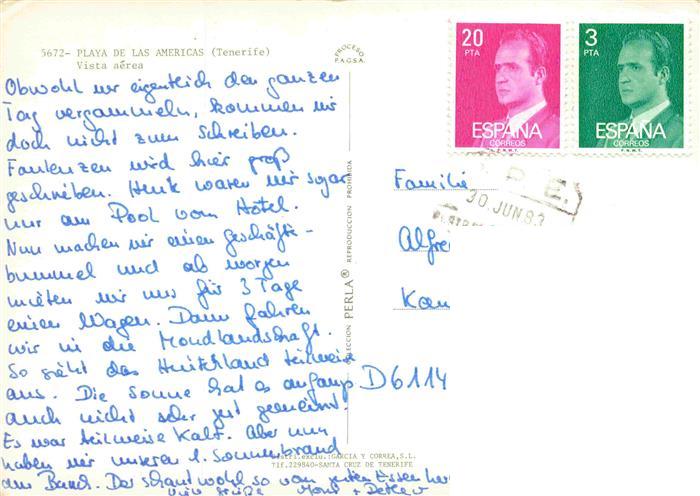 5672- PLAYA DE LAS AMERICAS (Tenerife)
Vista aérea
PROCESO
P.A.G.S.A.
Obwohl wir eigentlich den ganzen
Tag vergammeln, kommen wir
doch nicht zum Schreiben.
Faulenzen wird hier groß
geschrieben. Heute waren wir sogar
nur am Pool vom Hotel.
Nun machen wir einen Geschäfte-
bummel und ab morgen
mieten wir uns für 3 Tage
einen Wagen. Dann fahren
wir in die Mondlandschaft.
So sieht das Hinterland teilweise
aus. Die Sonne hat es anfangs
auch nicht sehr gut gemeint.
Es war teilweise kalt. Aber nun
haben wir unseren 1. Sonnenbrand
am Bauch. Der schaut wohl so vom guten Essen her
Viele Grüße
+ Detlev
COLECCION PERLA® REPRODUCCION PROHIBIDA
GARCIA Y CORREA, S.L.
Tlf. 229840-SANTA CRUZ DE TENERIFE
20
PTA
ESPAÑA
CORREOS
F.N.M.T.
3
PTA
ESPAÑA
CORREOS
F.N.M.T.
30 JUN. 83
Familie
Alfre
D 6114